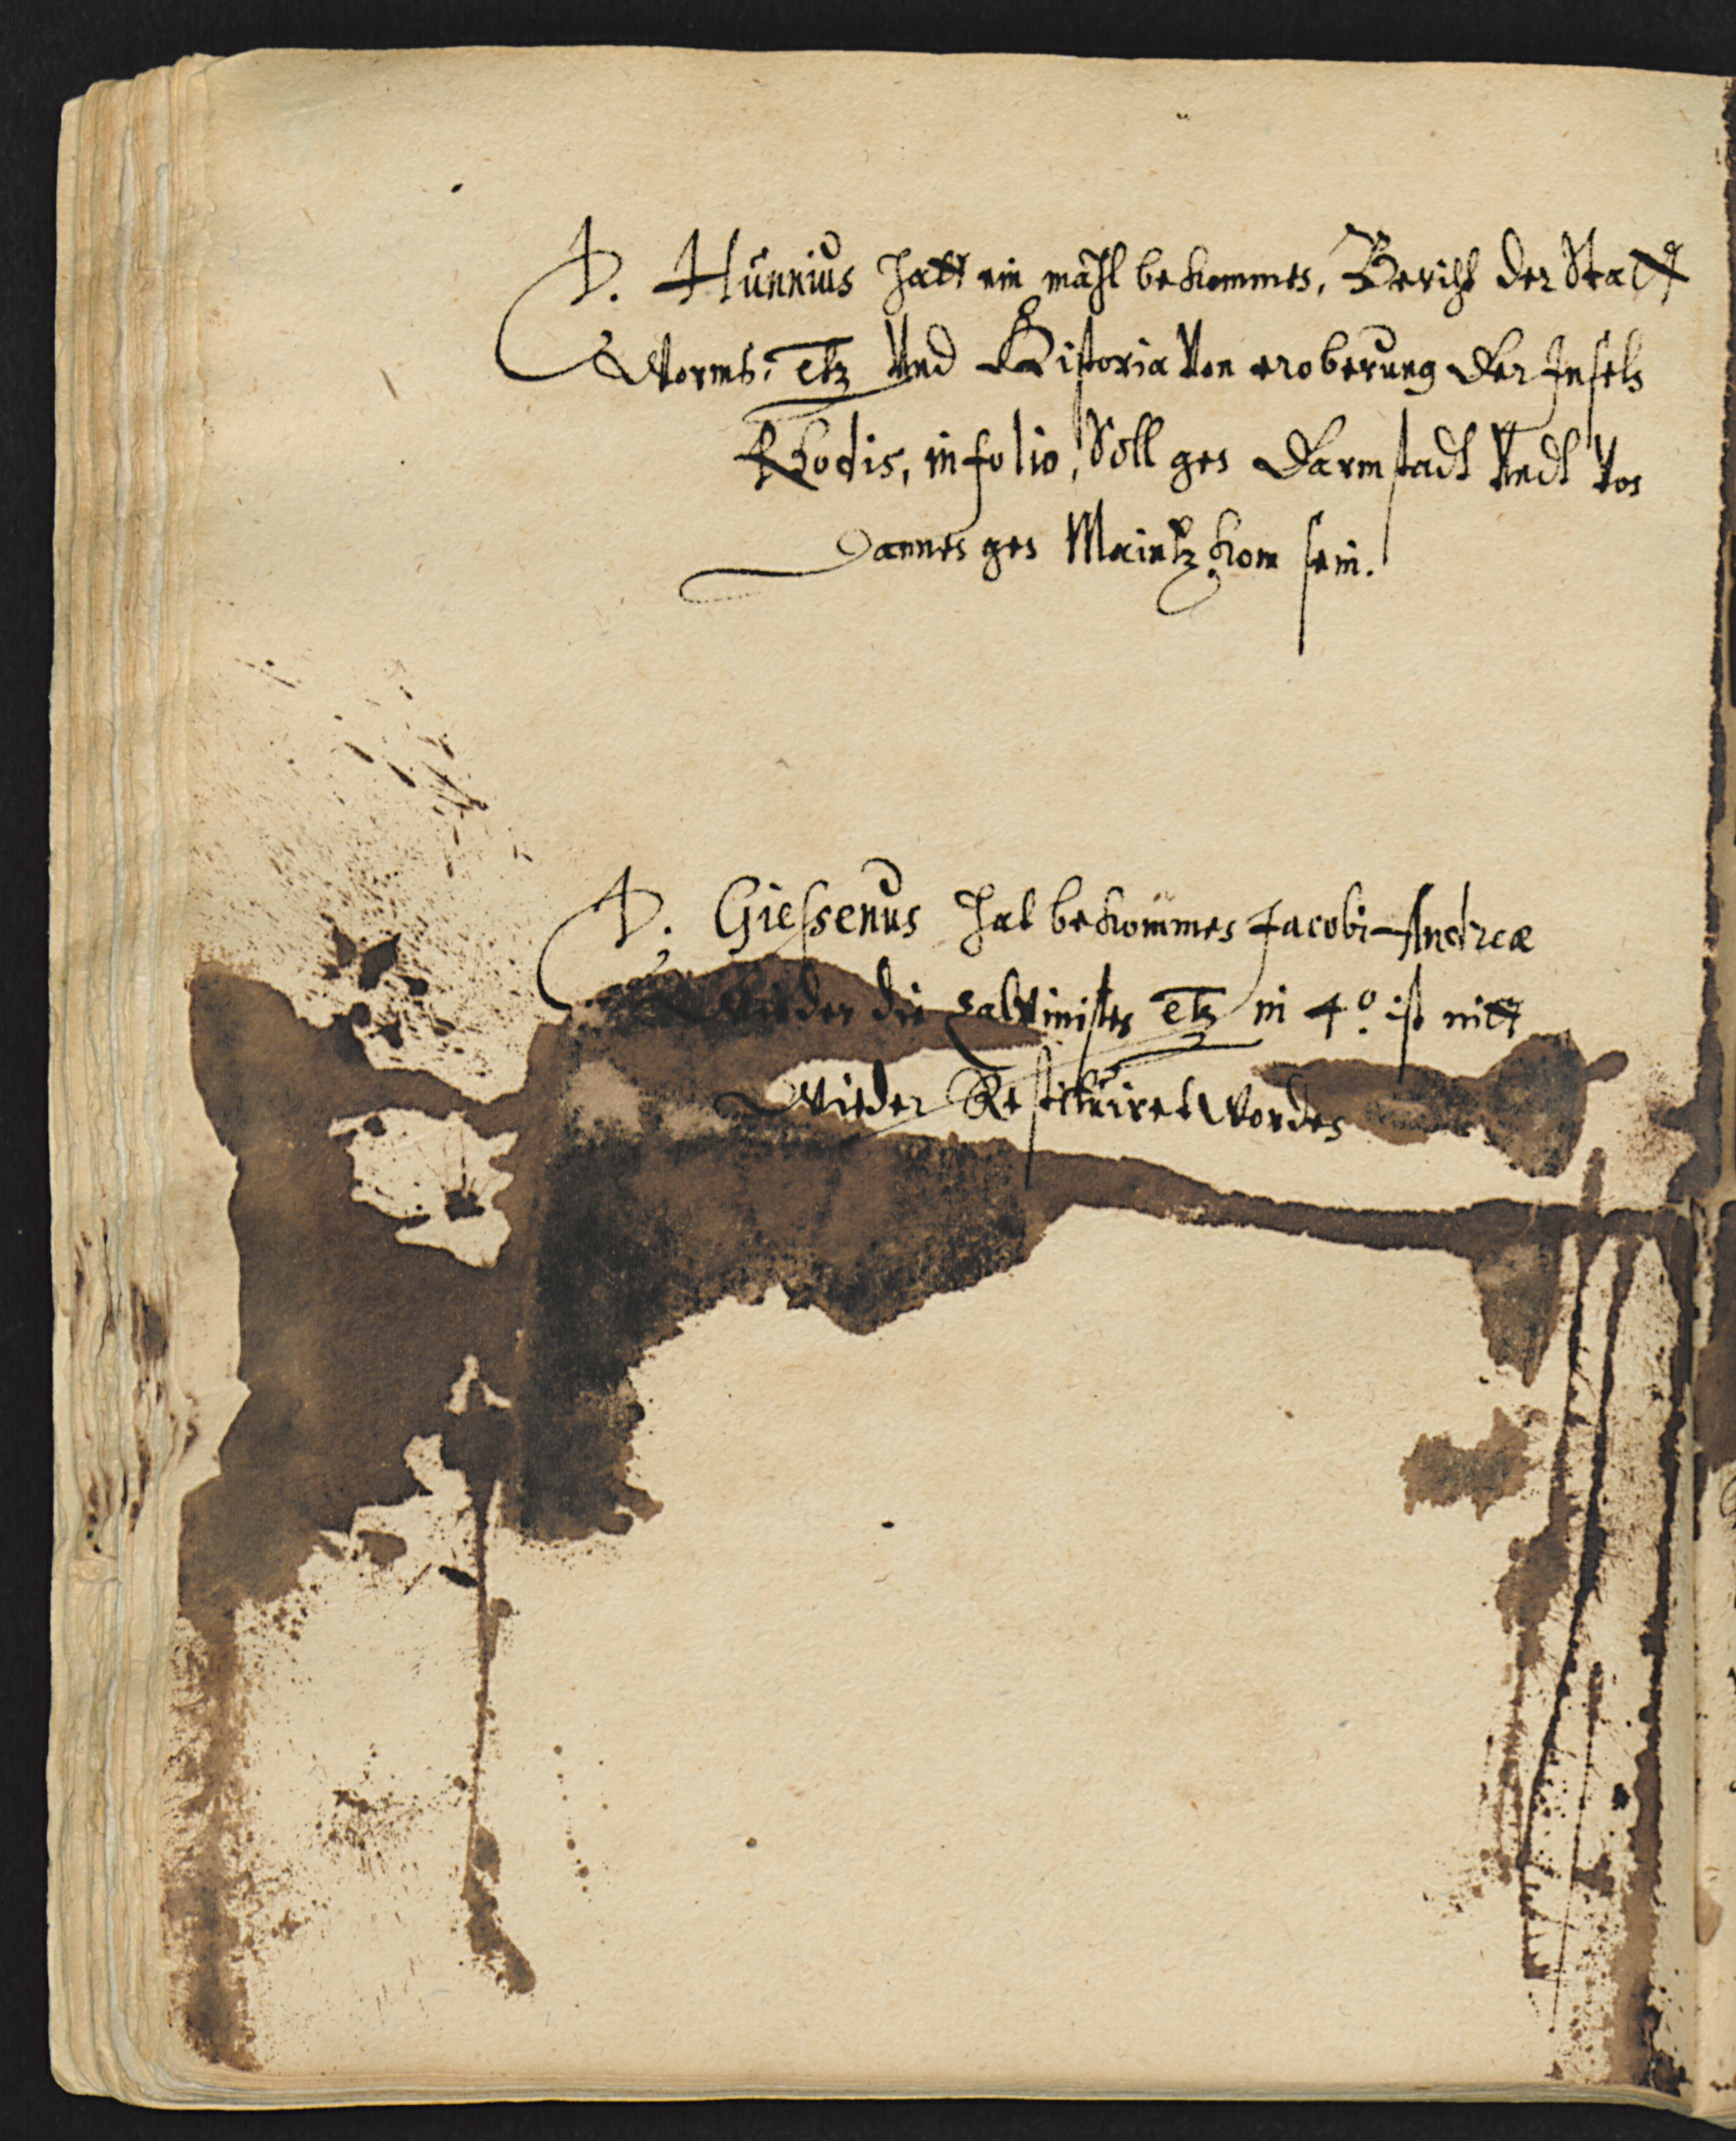 D. Hunnius hatt ein mahl bekommen, Bericht der Statt
Worms, etz Vnd Historia Von eroberung der Inseln
Rhodis, in folio, Soll gen Darmstadt Vndt Von
dannen gen Maintz kom sein.
D. Giessenus hat bekommen Jacobi Andreæ
Wieder die Calvinisten etz in 4º ist nitt
Wieder Restituiret Worden